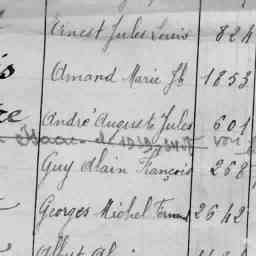 Ernest Jules Louis 824
Amand Marie Jh 1853
André Auguste Jules 601
Isaac
Guy Alain François 268
Georges Michel Fernand 2642
Albert